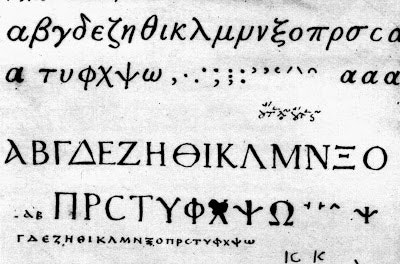 αβγδεζηθικλμμνξοπρσςα
α τυφχψω , . · : ; α α α
ΑΒΓΔΕΖΗΘΙΚΛΜΝΞΟ
ΑΒ ΠΡϹΤΥΦΧΨΩ Ψ
ΓΔΕΖΗΘΙΚΛΜΝΞΟΠΡϹΤΥΦΧΨΩ
ΙϹ Κ